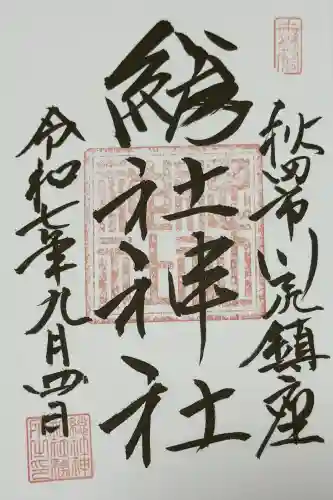 秋田市川尻鎮座
総社神社
令和七年九月四日